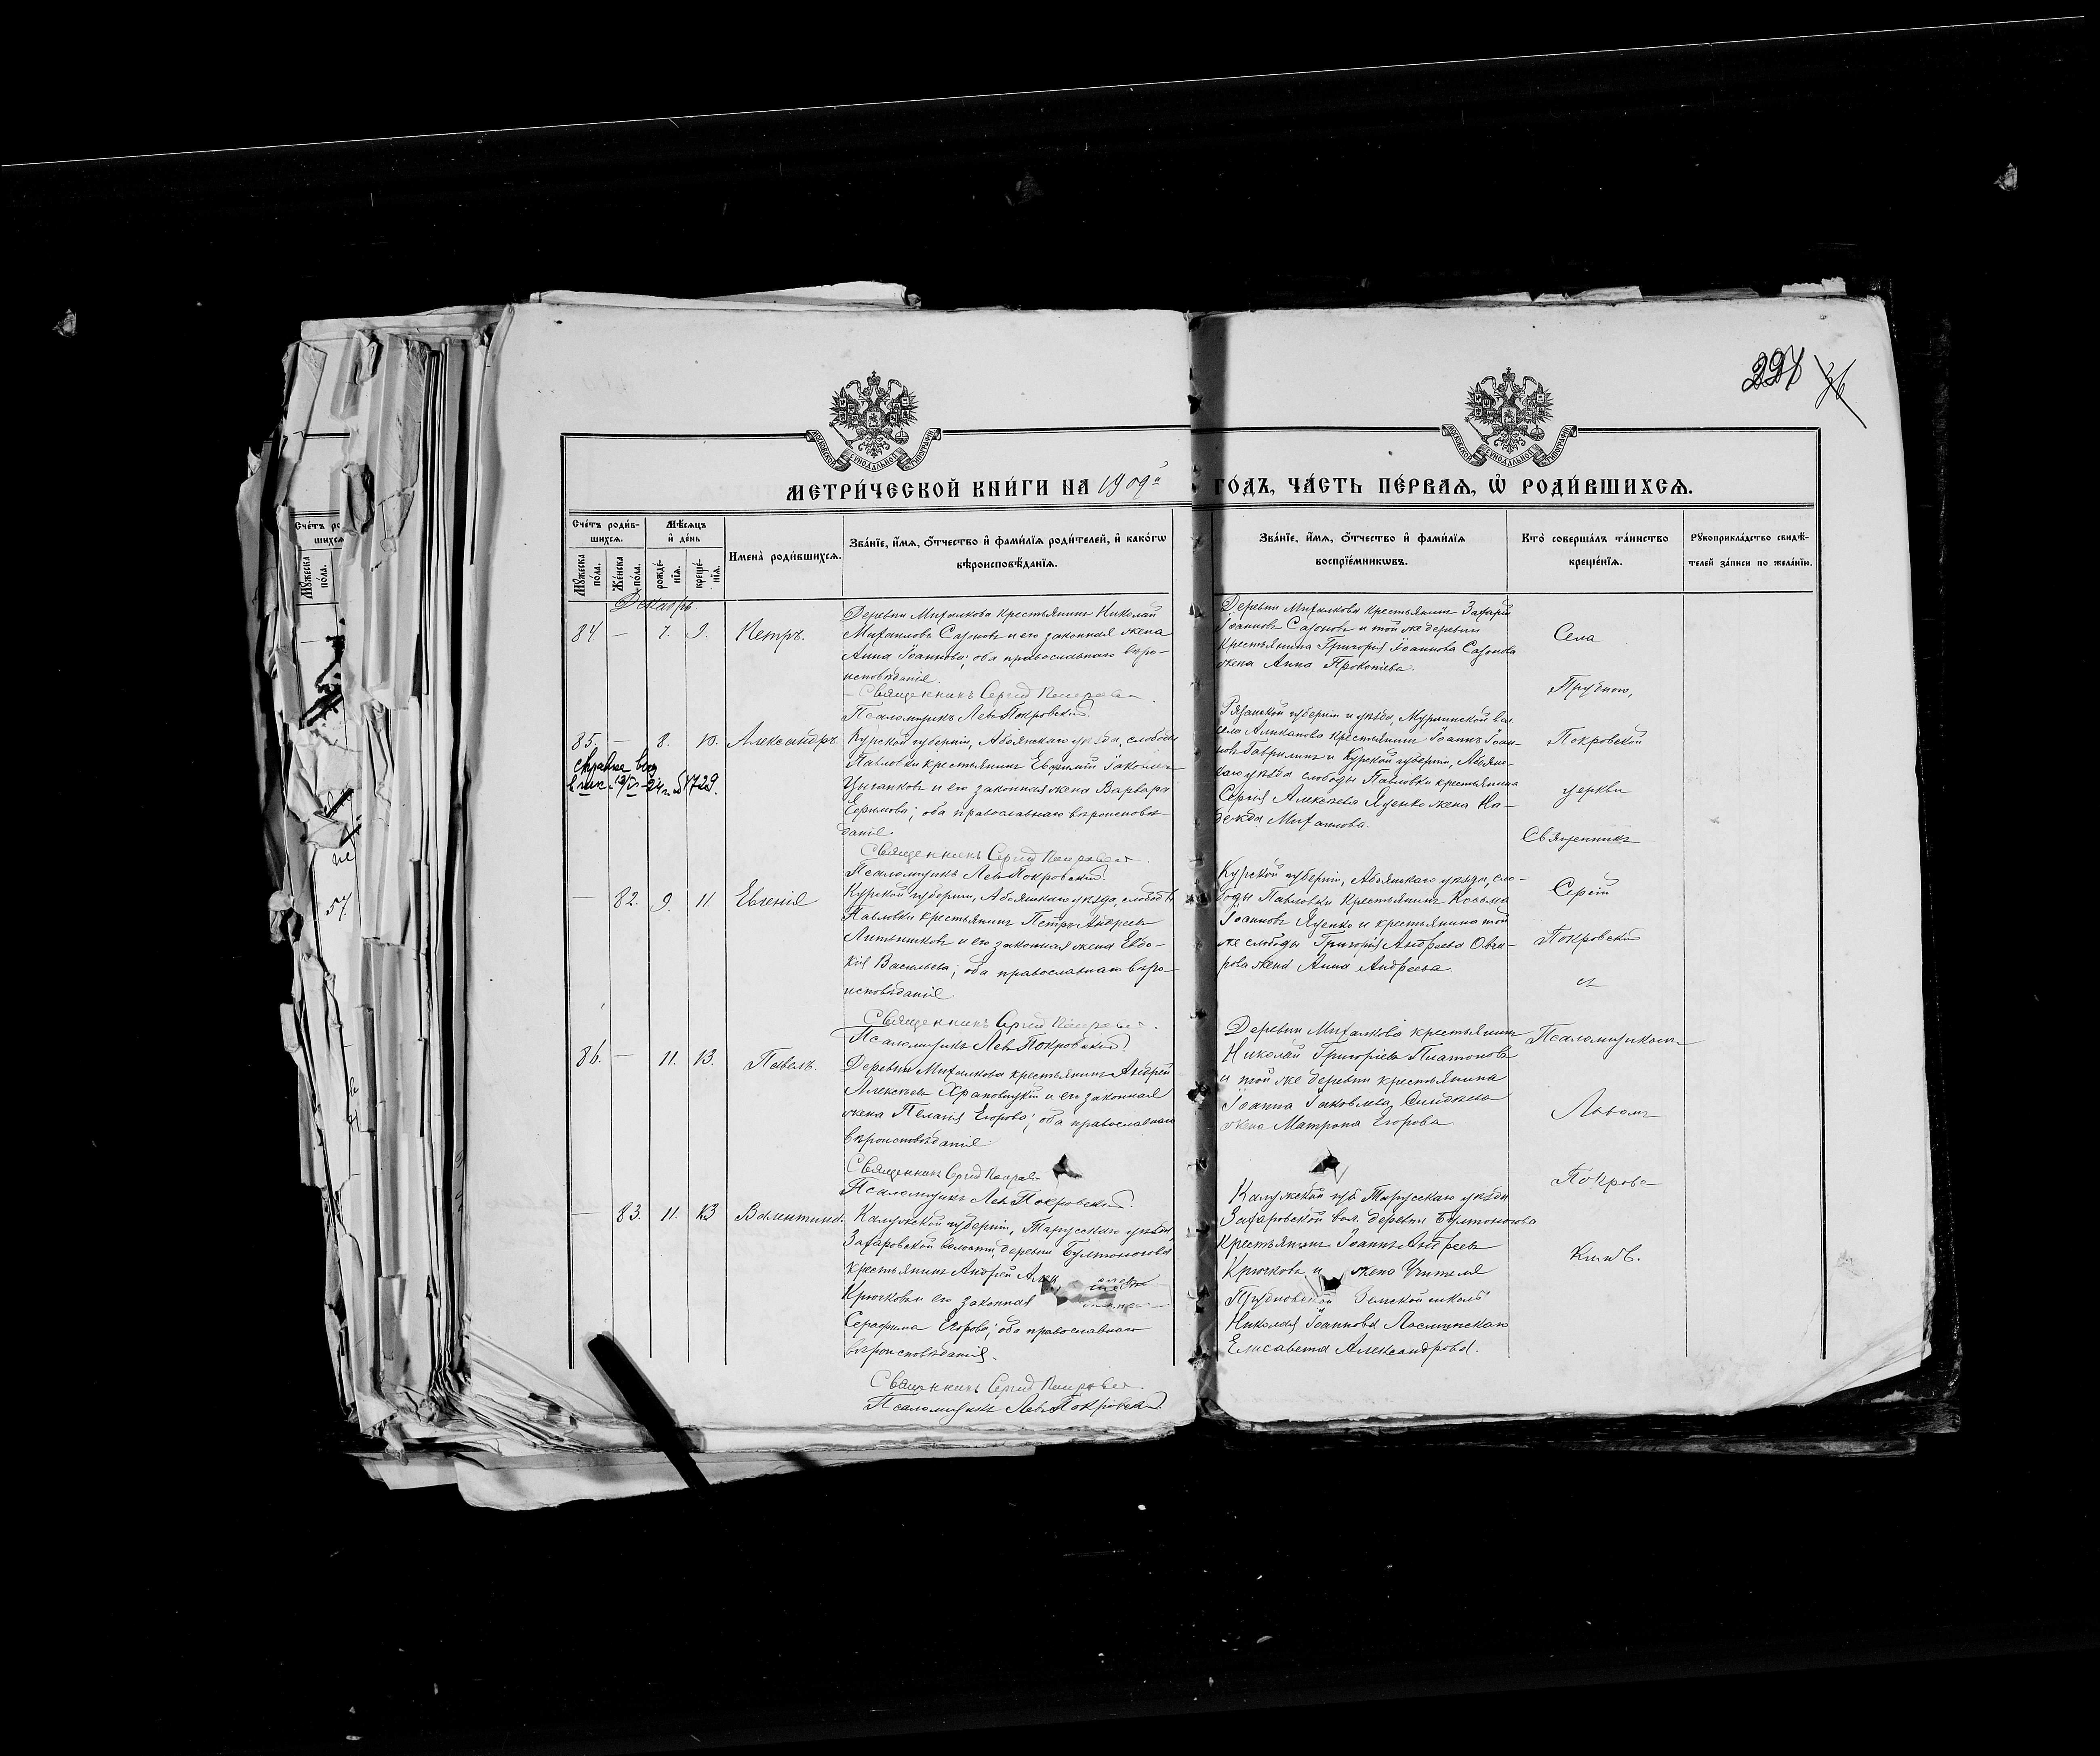 227 36
МЕТРИ́ЧЕСКОЙ КНИ́ГИ НА 1909й ГО́ДЪ, ЧА́СТЬ ПЕ́РВАЯ, Ѡ РОДИ́ВШИХСЯ.
МОСКОВСКОЙ СѴНОДАЛЬНОЙ ТИПОГРАФІИ
МОСКОВСКОЙ СѴНОДАЛЬНОЙ ТИПОГРАФІИ
Сче́тъ роди́в-
шихся.
Мꙋ́жеска по́ла.
Же́нска по́ла.
Мѣ́сяцъ
и҆ де́нь
рожде́-
нїѧ.
креще́-
нїѧ.
Имена̀ роди́вшихся.
Зва́нїе, и҆́мѧ, ѻ҆́тчество и҆ фами́лїѧ роди́телей, и҆ како́гѡ
вѣроисповѣ́данїѧ.
Зва́нїе, и҆́мѧ, ѻ҆́тчество и҆ фами́лїѧ
воспрїе́мникѡвъ.
Кто̀ соверша́лъ та́инство
креще́нїѧ.
Рꙋкоприкла́дство свидѣ́-
телей за́писи по жела́нїю.
Декабрь
84 — 7. 9. Петръ.
Деревни Михалкова крестьянинъ Николай
Михаиловъ Сазоновъ и его законная жена
Анна Іоаннова; оба православнаго вѣро-
исповѣданія.
Священникъ Сергій Покровскій
Псаломщикъ Левъ Покровскій.
Деревни Михалкова крестьянинъ Захарій
Іоанновъ Сазоновъ и той же деревни
крестьянина Григорія Іоаннова Сазонова
жена Анна Прокопіева.
85. — 8. 10. Александръ.
справка выд
729.
Курской губерніи, Абоянскаго уѣзда, слободы
Павловки крестьянинъ Евфимій Іаковлевъ
Цыганковъ и его законная жена Варвара
Ефимова; оба православнаго вѣроисповѣ-
данія.
Священникъ Сергій Покровскій
Псаломщикъ Левъ Покровскій.
Рязанской губерніи и уѣзда, Мурминской вол.
села Алеканова крестьянинъ Іоаннъ Іоан-
новъ Гаврилинъ и Курской губерніи, Абоян-
скаго уѣзда слободы Павловки крестьянина
Сергія Алексѣева Яценко жена На-
дежда Михаилова.
— 82. 9. 11. Евгенія
Курской губерніи, Абоянскаго уѣзда, слободы
Павловки крестьянинъ Петръ Андреевъ
Литвиновъ и его законная жена Евдо-
кія Васильева; оба православнаго вѣро-
исповѣданія.
Священникъ Сергій Покровскій
Псаломщикъ Левъ Покровскій.
Курской губерніи, Абоянскаго уѣзда, сло-
боды Павловки крестьянинъ Косьма
Іоанновъ Яценко и крестьянина той
же слободы Григорія Андреева Овча-
рова жена Анна Андреева.
86. — 11. 13. Павелъ.
Деревни Михалкова крестьянинъ Андрей
Алексѣевъ Храповицкій и его законная
жена Пелагія Егорова; оба православнаго
вѣроисповѣданія
Священникъ Сергій Покровскій
Псаломщикъ Левъ Покровскій.
Деревни Михалкова крестьянинъ
Николай Григоріевъ Платоновъ
и той же деревни крестьянина
Іоанна Іаковлева
жена Матрона Егорова
— 83. 11. 13 Валентина.
Калужской губерніи, Тарусскаго уѣзда,
Захаровской волости, деревни
крестьянинъ Андрей
Крючковъ и его законная
Серафима Егорова; оба православнаго
вѣроисповѣданія.
Священникъ Сергій Покровскій
Псаломщикъ Левъ Покровскій
Калужской губ. Тарусскаго уѣзда
Захаровской вол. деревни
крестьянинъ Іоаннъ Андреевъ
Крючковъ и жена Учителя
Трудновской Земской школы
Николая Іоаннова
Елисавета Александрова.
Села
Трубного,
Покровской
церкви
Священникъ
Сергій
Покровскій
съ
Псаломщикомъ
Львомъ
Покров-
скимъ.